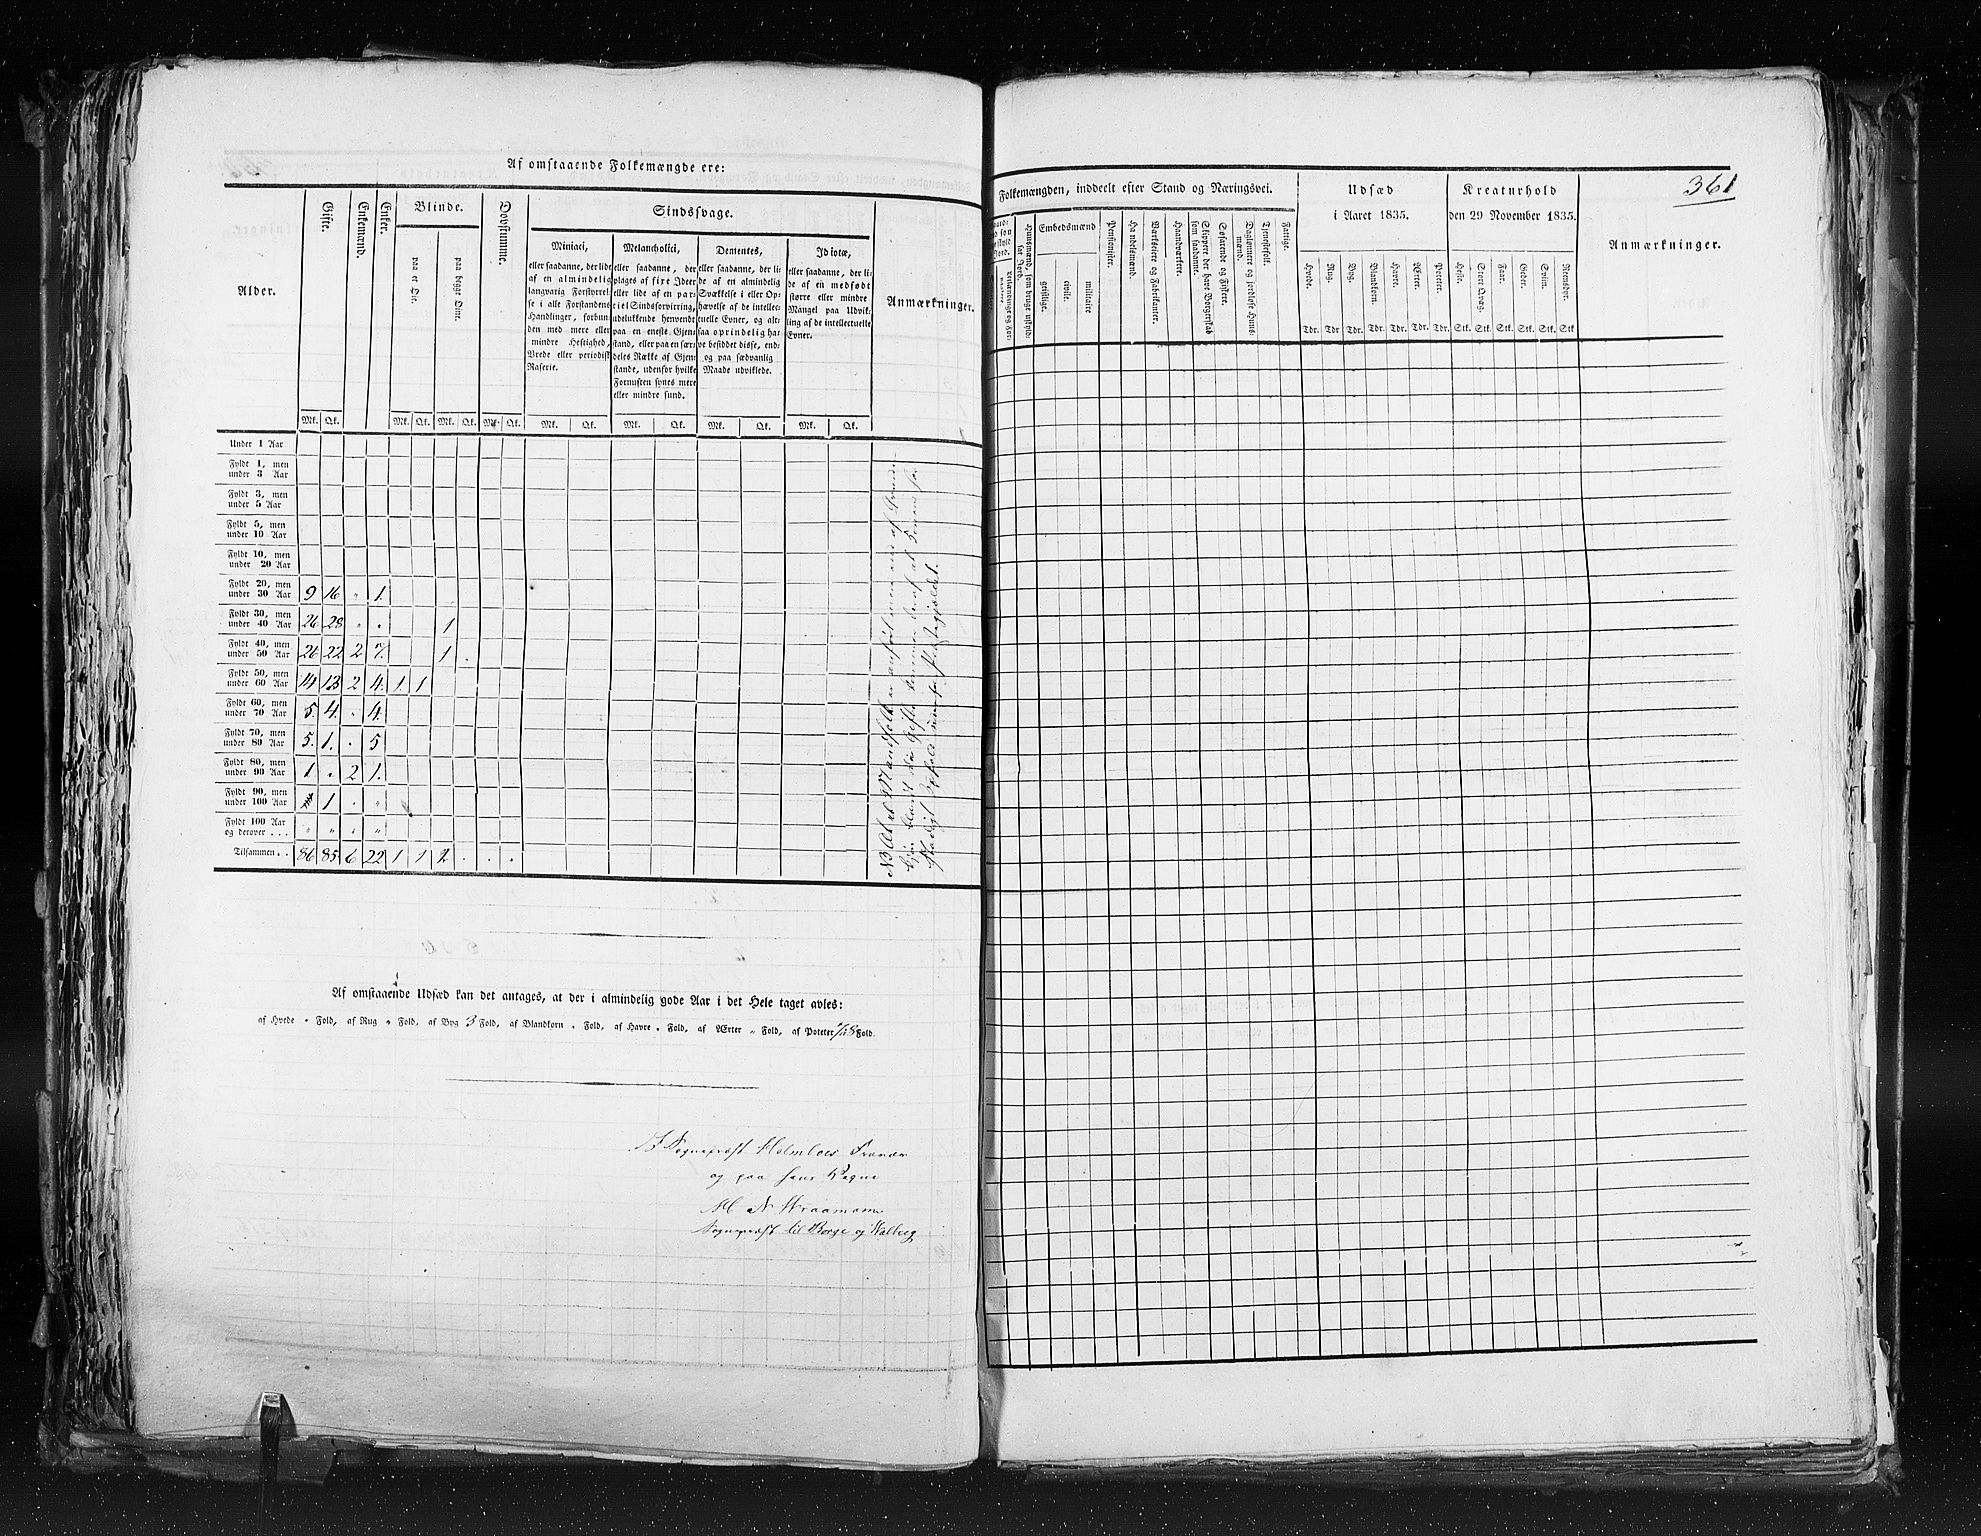 Af omstaaende Folkemængde ere:
Alder.
Gifte.
Enkemænd.
Enker.
Blinde.
paa et Øie.
paa begge Øine.
Døvstumme.
Sindssvage.
Miniaci,
eller saadanne, der lide
af en almindelig
langvarig Forstyrrel-
se i alle Forstandens
Handlinger, forbun-
den med mere eller
mindre Heftighed,
Vrede eller periodisk
Raserie.
Melancholici,
eller saadanne, der
plages af fixe Ideer
eller lide af en par-
tiel Sindsforvirring,
udelukkende henvendt
paa en eneste Gjen-
stand, eller paa en sær-
deles Række af Gjen-
stande, udenfor hvilke
Fornuften synes mere
eller mindre sund.
Dementes,
eller saadanne, der li-
de af en almindelig
Svækkelse i eller Op-
hævelse af de intellec-
tuelle Evner, og al-
saa oprindelig ha-
ve besiddet disse, end-
og paa sædvanlig
Maade udviklede.
Idiotæ,
eller saadanne, der li-
de af en medfødt
større eller mindre
Mangel paa Udvik-
ling af de intellectuelle
Evner.
Anmærkninger.
Mk. Qk. Mk. Qk. Mk. Qk. Mk. Qk. Mk. Qk. Mk. Qk. Mk. Qk. Mk. Qk.
Under 1 Aar
Fyldt 1, men
under 3 Aar
Fyldt 3, men
under 5 Aar
Fyldt 5, men
under 10 Aar
Fyldt 10, men
under 20 Aar
Fyldt 20, men
under 30 Aar 9 16 " 1.
Fyldt 30, men
under 40 Aar 26 28 " " 1
Fyldt 40, men
under 50 Aar 26 22 2 7. 1 .
Fyldt 50, men
under 60 Aar 14 13 2 4. 1. 1
Fyldt 60, men
under 70 Aar 5. 4. . 4.
Fyldt 70, men
under 80 Aar 5. 1. . 5
Fyldt 80, men
under 90 Aar 1 . 2 1.
Fyldt 90, men
under 100 Aar 1 . "
Fyldt 100 Aar
og derover . . . " " " "
Tilsammen . . 86 85 6 22 1 1 2 . . .
NB At et Mandfolk er anført
Af omstaaende Udsæd kan det antages, at der i almindelig gode Aar i det Hele taget avles:
af Hvede " Fold, af Rug " Fold, af Byg 3 Fold, af Blandkorn . Fold, af Havre . Fold, af Ærter " Fold, af Poteter Fold.
Sognepræst Holmboes Fravær
og paa hans Vegne
Sognepræst til Borge og
361
Folkemængden, inddeelt efter Stand og Næringsvei.
Huusmænd, som bruge udskyld-
sat Jord.
Embedsmænd
geistlige.
civile.
militaire
Pensionister.
Handelsmænd.
Værkseiere og Fabrikanter.
Haandværkere.
Skippere der have Borgerskab
som saadanne.
Søfarende og Fiskere.
Daglønnere og jordløse Huus-
mænd.
Tjenestefolk.
Fattige.
Udsæd
i Aaret 1835.
Hvede. Rug. Byg. Blandkorn. Havre. Ærter. Poteter.
Tdr. Tdr Tdr. Tdr. Tdr. Tdr. Tdr.
Kreaturhold
den 29 November 1835.
Heste. Stort Qvæg. Faar. Geder. Sviin. Reensdyr.
Stk. Stk. Stk. Stk. Stk. Stk
Anmærkninger.